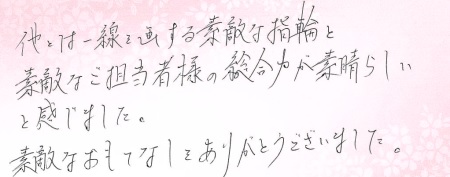 他とは一線を画する素敵な指輪と
素敵なご担当者様の総合力が素晴らしい
と感じました。
素敵なおもてなしをありがとうございました。